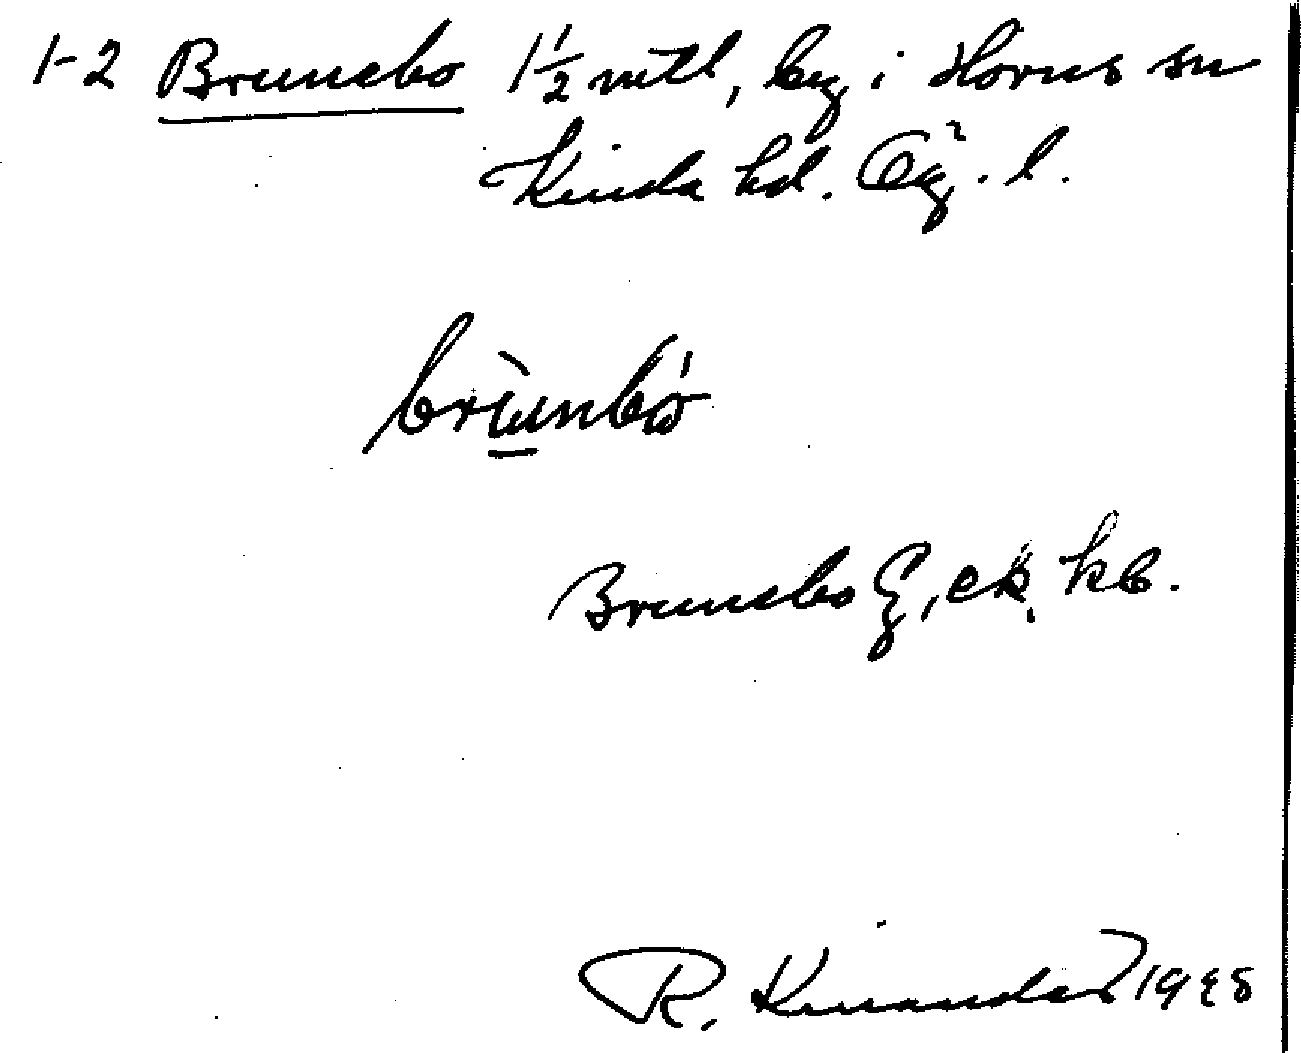 1-2 Brunebo 1½ mtl, by i Horns sn
Kinda hd. Ög. l.
Brunebo
ek. kb.
R. Kinander 1948